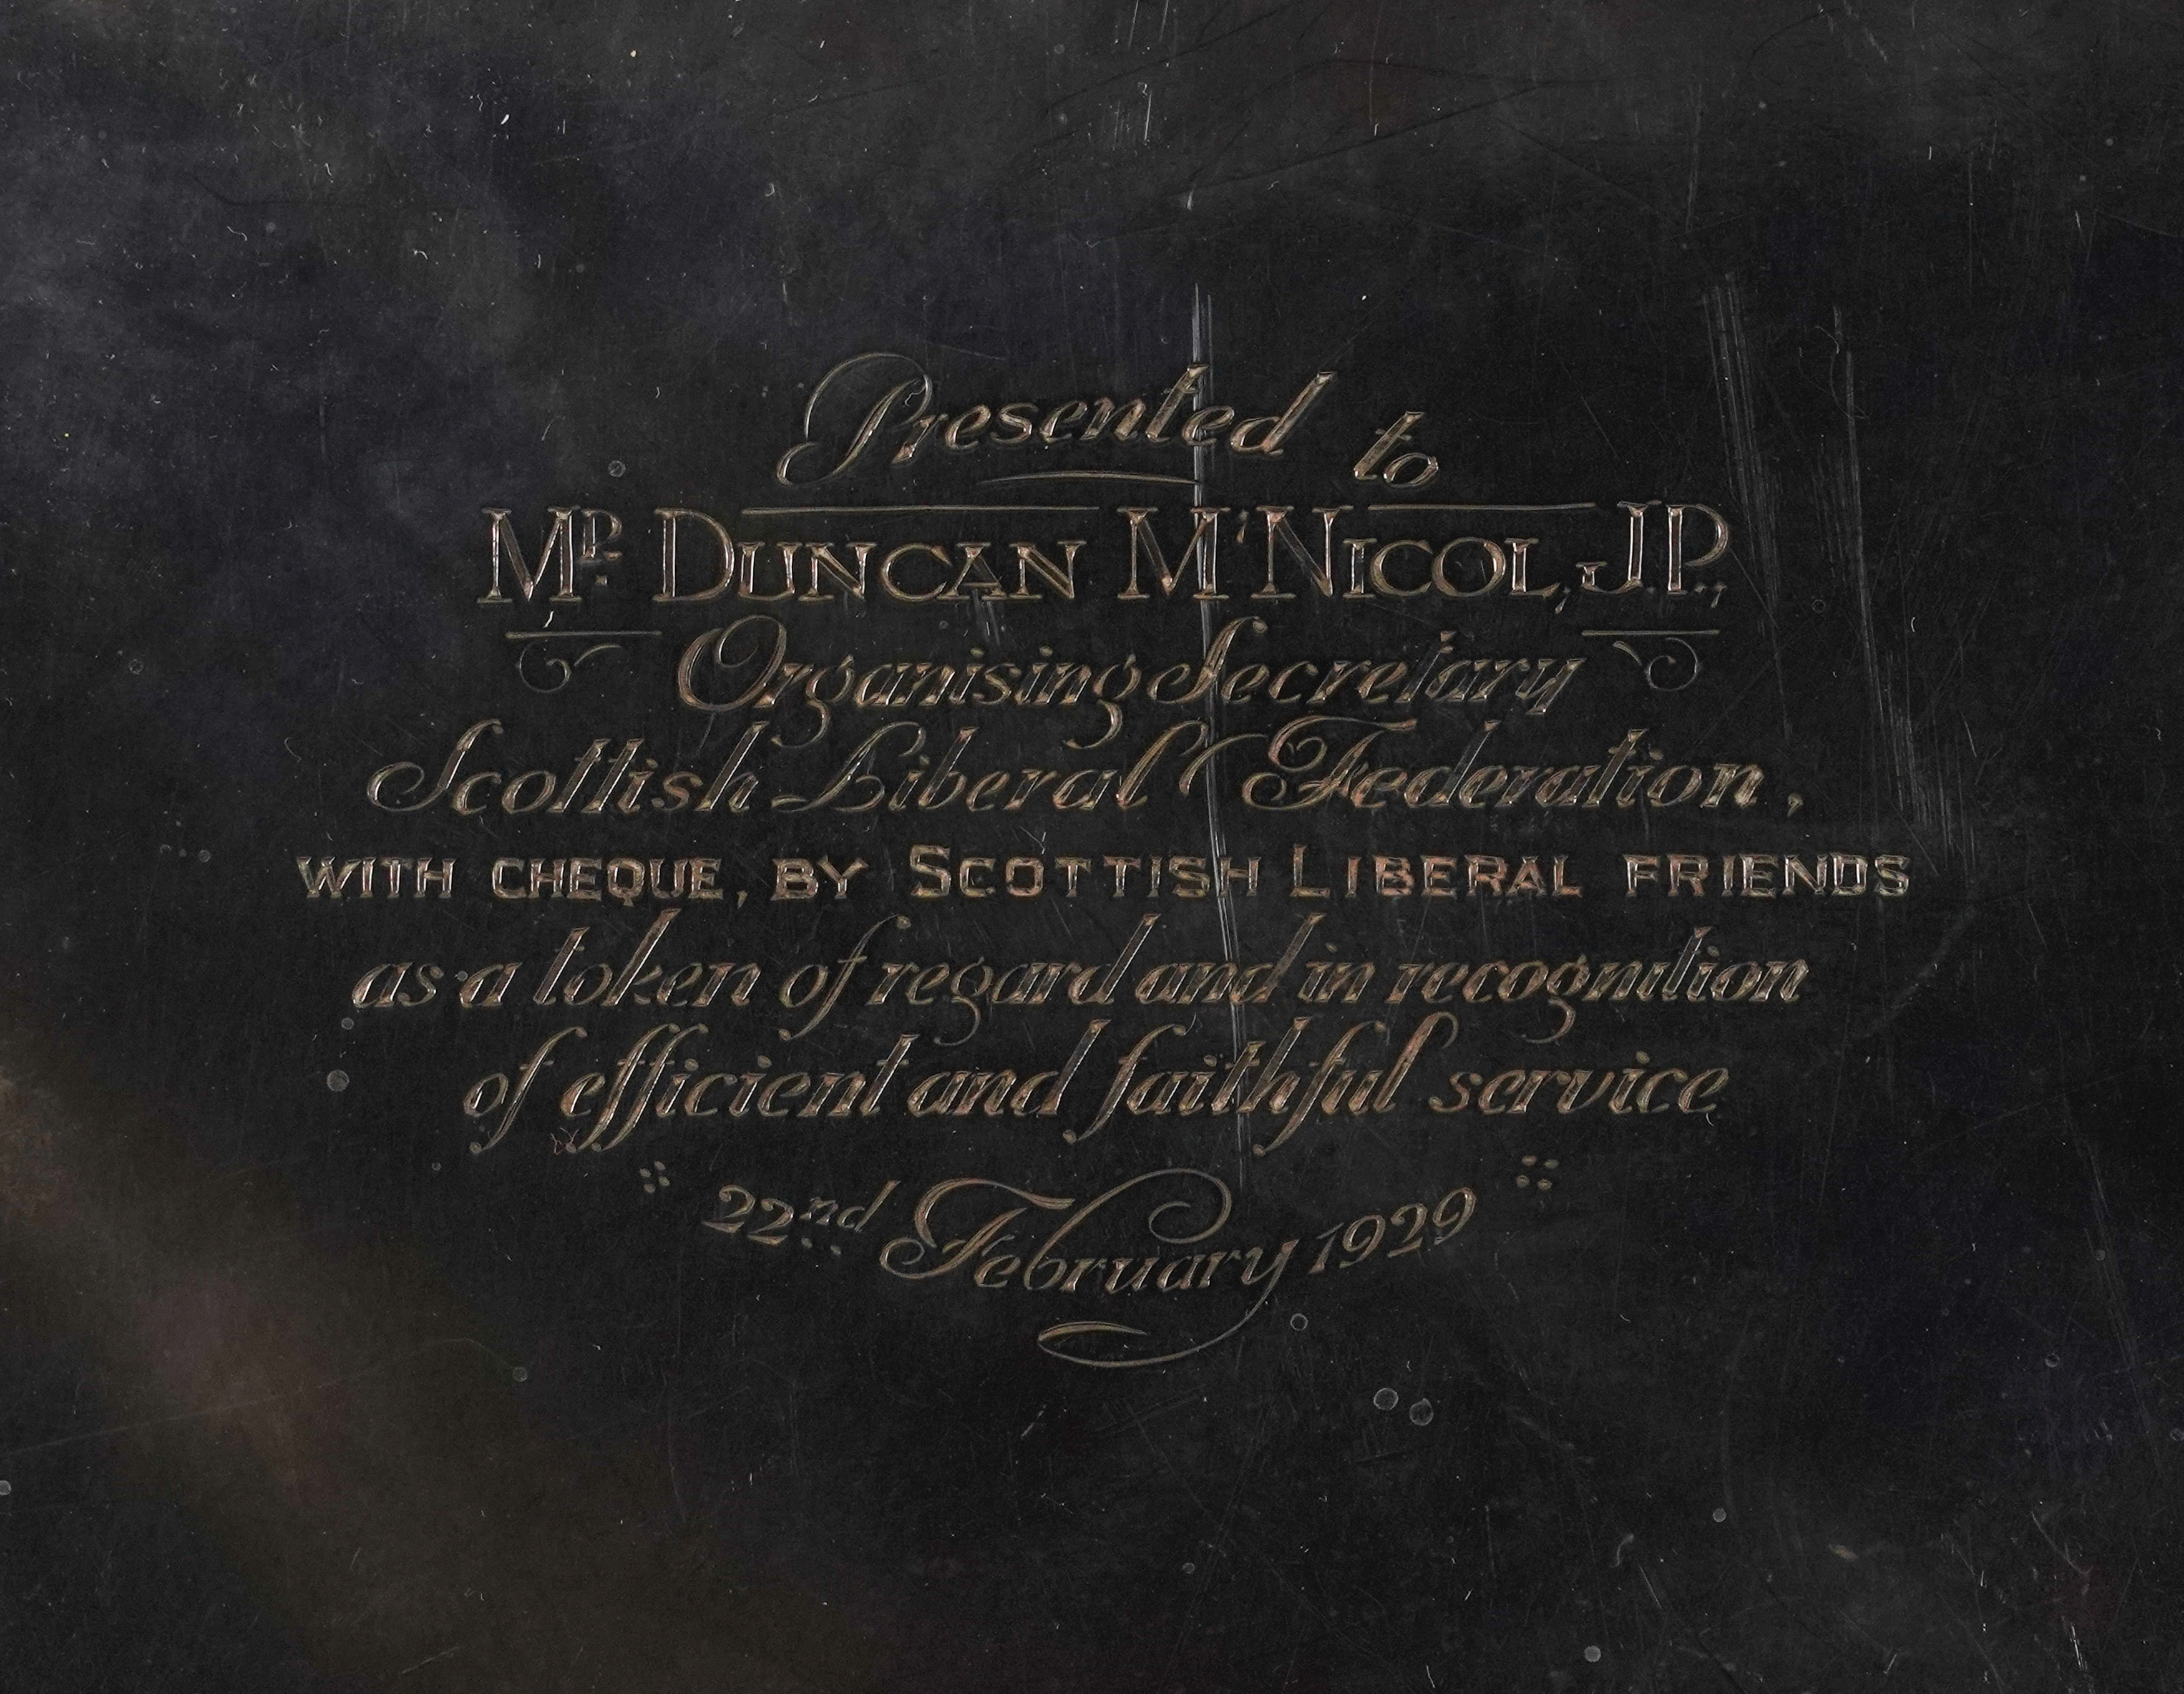 Presented to
Mr. Duncan M'Nicol, J.P.,
Organising Secretary
Scottish Liberal Federation,
WITH CHEQUE, BY SCOTTISH LIBERAL FRIENDS
as a token of regard and in recognition
of efficient and faithful service
22nd February 1929